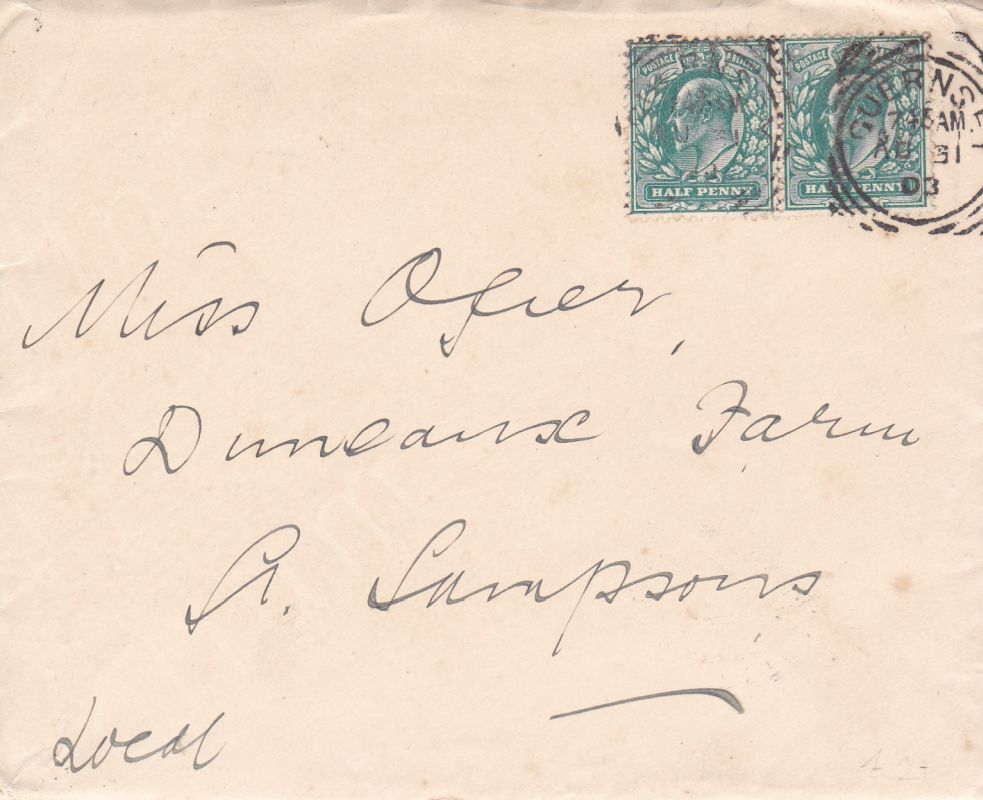 POSTAGE REVENUE POSTAGE REVENUE
HALF PENNY HALF PENNY
GUERNSEY
7 45 AM
AU 31
03
Miss Ogier,
Duncaux Farm
St. Sampsons
Local